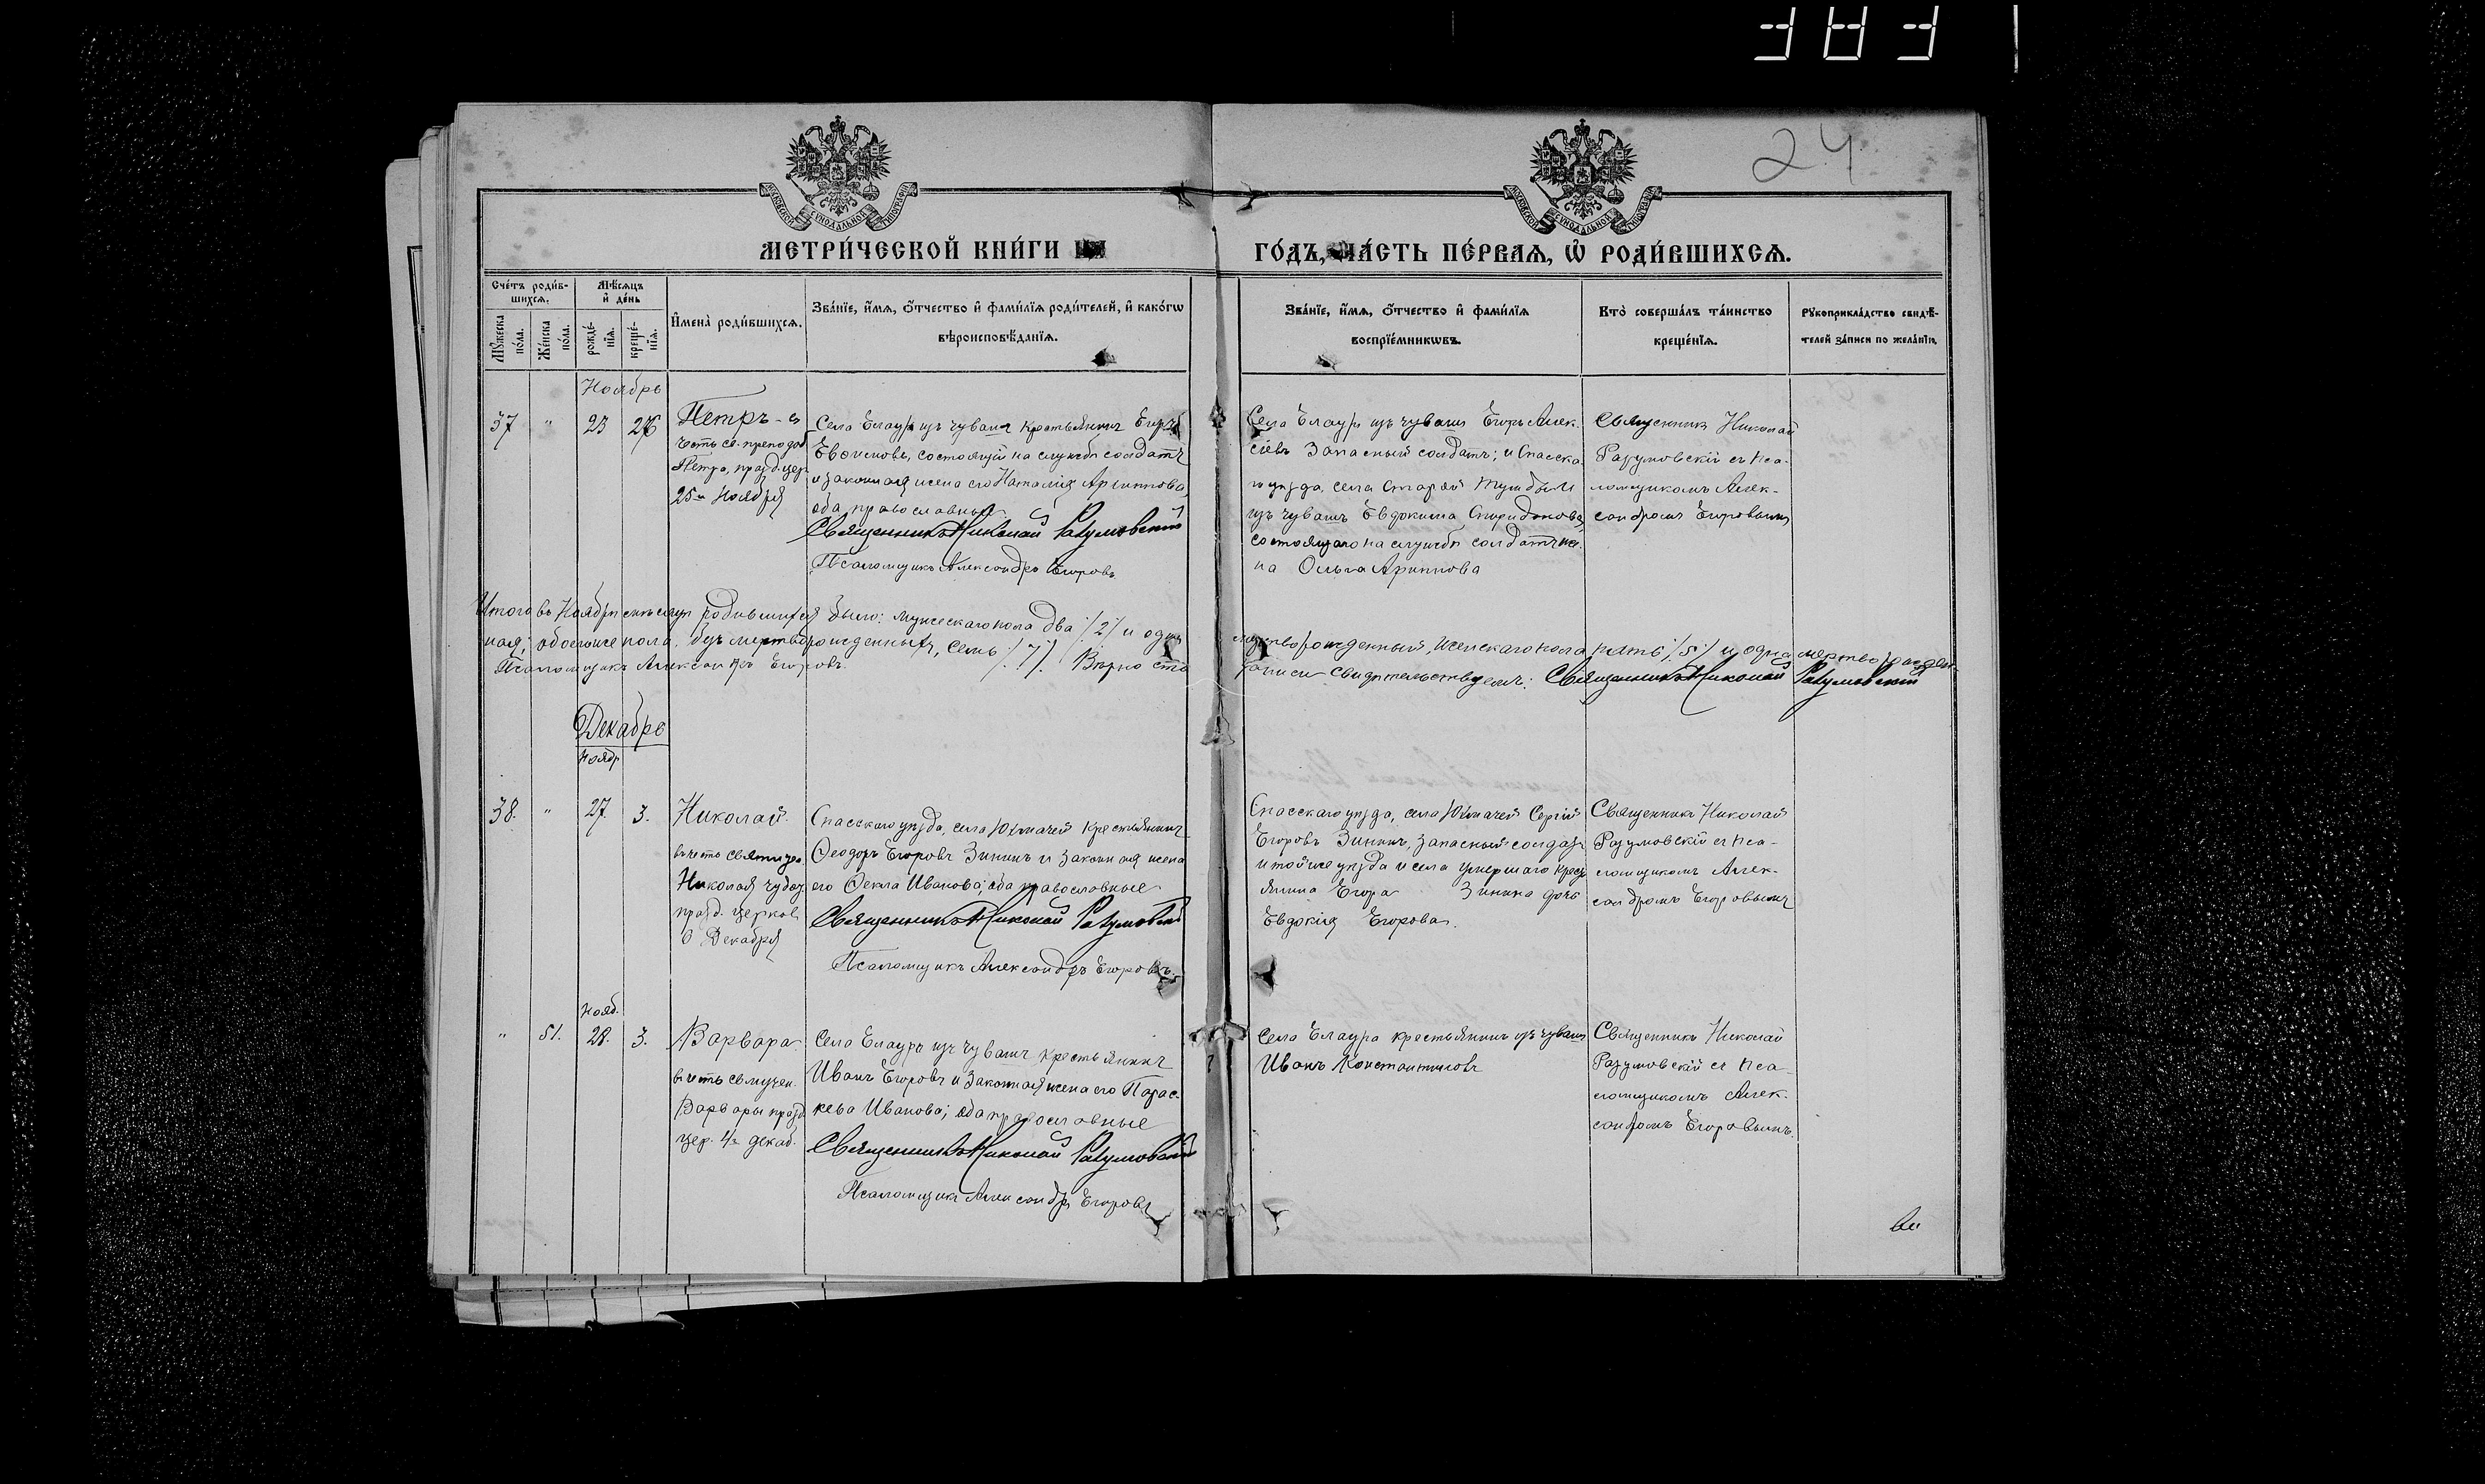 24
МОСКОВСКОЙ СѴНОДАЛЬНОЙ ТИПОГРАФІИ
МОСКОВСКОЙ СѴНОДАЛЬНОЙ ТИПОГРАФІИ
МЕТРИ́ЧЕСКОЙ КНИ́ГИ НА
ГО́ДЪ, ЧА́СТЬ ПЕ́РВАЯ, Ѡ҆ РОДИ́ВШИХСЯ.
Сче́тъ роди́в-
шихся.
Мѣ́сяцъ
и҆ де́нь
Мꙋ́жеска
по́ла.
Же́нска
по́ла.
рожде́-
нїя.
креще́-
нїя.
И҆мена̀ роди́вшихся.
Зва́нїе, и҆́мя, ѻ҆́тчество и҆ фами́лїя роди́телей, и҆ како́гѡ
вѣроисповѣ́данїя.
Зва́нїе, и҆́мя, ѻ҆́тчество и҆ фами́лїя
воспрїе́мникѡвъ.
Кто̀ соверша́лъ та́инство
креще́нїя.
Рꙋкоприкла́дство свидѣ́-
телей за́писи по жела́нїю.
Ноябрь
37 " 23 26
Петръ - в
честь св. преподоб.
Петра, празд. цер.
25го Ноября
Села Елаура изъ чувашъ крестьянинъ Егоръ
Евѳимовъ, состоящій на службѣ солдатъ
и законная жена его Наталія Архиппова,
оба православные
Священникъ Николай Разумовскій
Псаломщикъ Александръ Егоровъ
Села Елаура изъ чувашъ Егоръ Алек-
сіевъ Запасный солдатъ; и Спасска-
го уѣзда, села Старой
изъ чувашъ Евдокима Спиридонова,
состоящаго на службѣ солдата же-
на Ольга Архиппова
Священникъ Николай
Разумовскій съ пса-
ломщикомъ Алек-
сандромъ Егоровымъ
Итого въ Ноябрѣ мѣсяцѣ родившихся было: мужескаго пола два /2/ и одинъ
мертворожденный, женскаго пола пять /5/ и одна мертворожден-
ная; обоего же пола, безъ мертворожденныхъ, семь /7/. Вѣрно сію
записи свидѣтельствуемъ: Священникъ Николай Разумовскій
Псаломщикъ Александръ Егоровъ.
Декабрь
Нояб.
38. " 27. 3.
Николай.
въ честь святителя
Николая чудот.
празд. церков.
6 Декабря
Спасскаго уѣзда, села Юхмачей крестьянинъ
Ѳеодоръ Егоровъ Зининъ и законная жена
его Ѳекла Иванова; оба православные
Священникъ Николай Разумовскій
Псаломщикъ Александръ Егоровъ.
Спасскаго уѣзда, села Юхмачей Сергій
Егоровъ Зининъ, запасный солдатъ
и той же уѣзда и села умершаго крест-
янина Егора Зинина дочь
Евдокія Егорова.
Священникъ Николай
Разумовскій съ пса-
ломщикомъ Алек-
сандромъ Егоровымъ
Нояб.
" 51. 28. 3.
Варвара.
въ честь св. мучен.
Варвары празд.
цер. 4го декаб.
Села Елаура изъ чувашъ крестьянинъ
Иванъ Егоровъ и законная жена его Парас-
кева Иванова; оба православные
Священникъ Николай Разумовскій
Псаломщикъ Александръ Егоровъ
Села Елаура крестьянинъ изъ чувашъ
Иванъ Константиновъ
Священникъ Николай
Разумовскій съ пса-
ломщикомъ Алек-
сандромъ Егоровымъ.